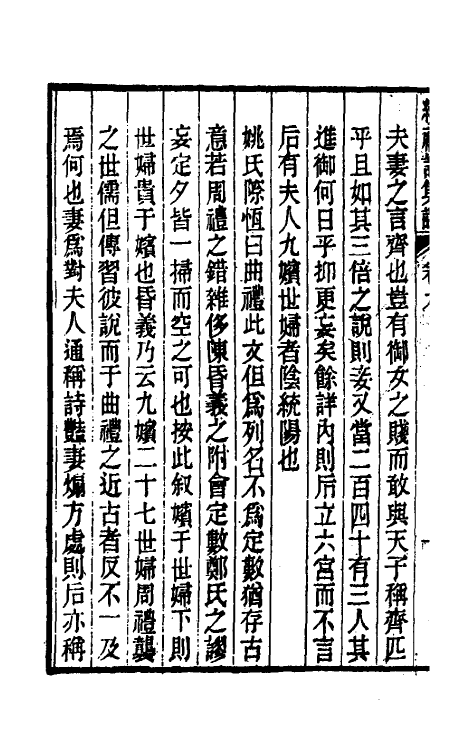 續禮記集說 卷九
夫妻之言齊也豈有御女之賤而敢與天子稱齊匹
乎且如其三倍之說則妾又當二百四十有三人其
進御何日乎抑更妄矣餘詳內則后立六宮而不言
后有夫人九嬪世婦者陰統陽也
姚氏際恆曰曲禮此文但爲列名不爲定數猶存古
意若周禮之錯雜侈陳昏義之附會定數鄭氏之謬
妄定夕皆一掃而空之可也按此叙嬪于世婦下則
世婦貴于嬪也昏義乃云九嬪二十七世婦周禮襲
之世儒但傳習彼說而于曲禮之近古者反不一及
焉何也妻爲對夫人通稱詩豔妻煽方處則后亦稱